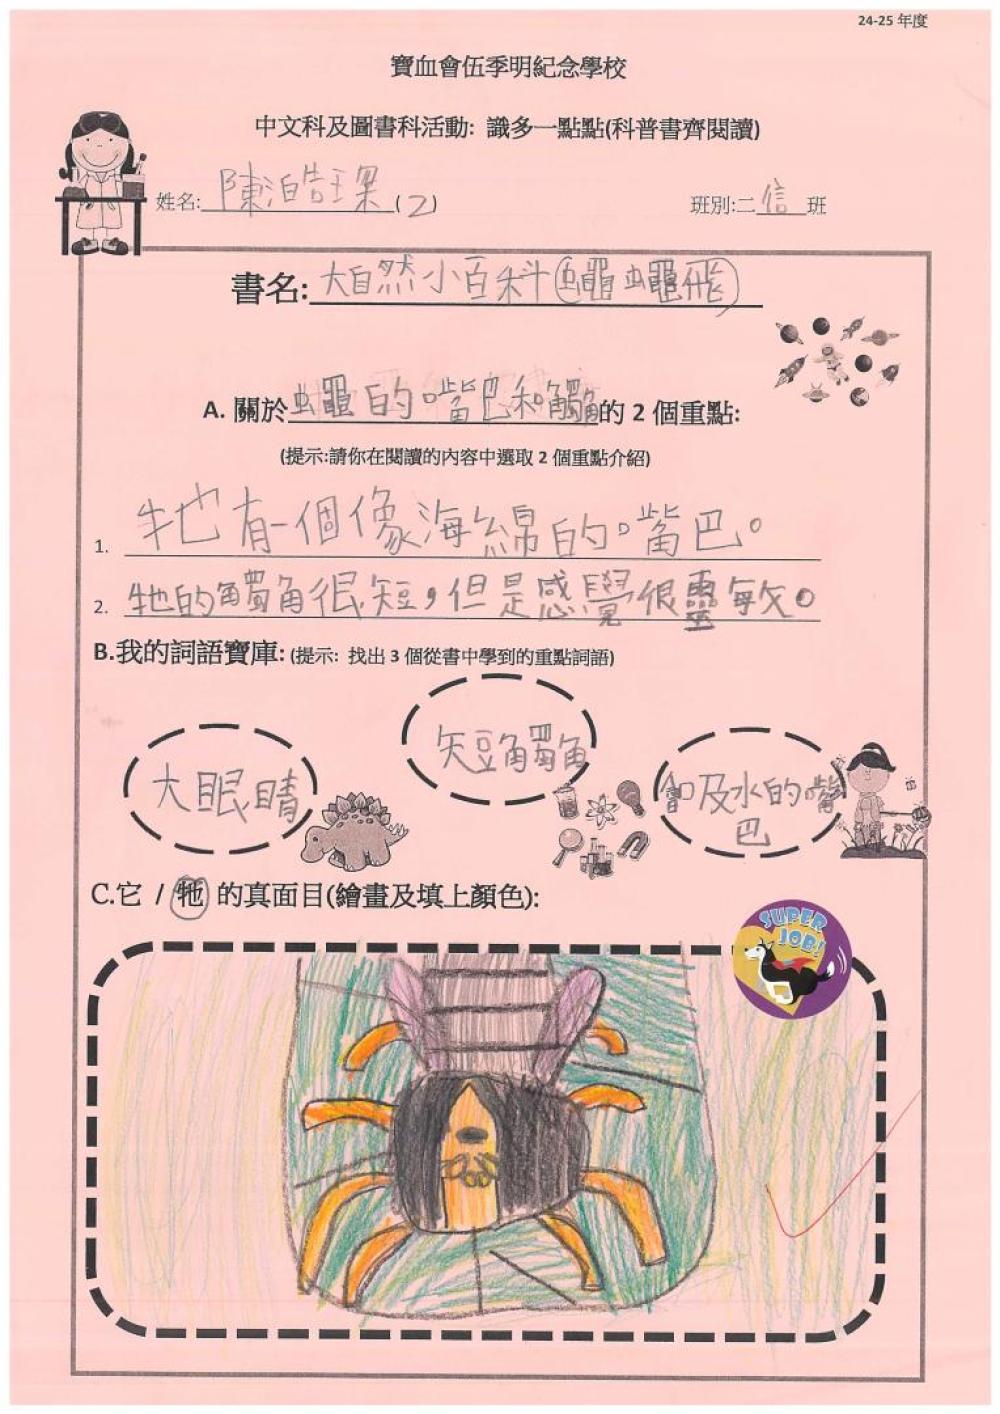 24-25 年度
寶血會伍季明紀念學校
中文科及圖書科活動: 識多一點點(科普書齊閱讀)
姓名: 陳泊皓 (2)
班別:二信班
書名: 大自然小百科(蠅蠅飛)
A. 關於蠅的嘴巴和觸的 2 個重點:
(提示:請你在閱讀的內容中選取 2 個重點介紹)
1. 牠有一個像海綿的。嘴巴。
2. 牠的觸角很短,但是感覺很靈敏。
B.我的詞語寶庫: (提示: 找出 3 個從書中學到的重點詞語)
短觸角
大眼睛
吸水的嘴
巴
C.它 / 牠 的真面目(繪畫及填上顏色):
SUPER
JOB!